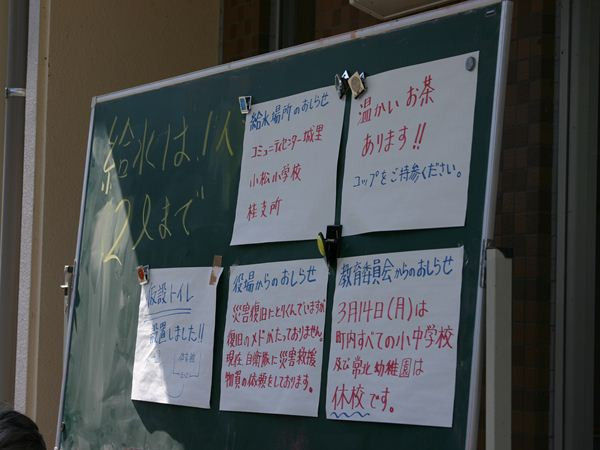 給水は1人
2ℓまで
給水場所のおしらせ
コミュニティセンター城里
小松小学校
桂支所
温かいお茶
あります!!
コップをご持参ください。
仮設トイレ
設置しました!!
役場からのおしらせ
災害復旧にとりくんでいますが
復旧のメドがたっておりません。
現在、自衛隊に災害救援
物資の依頼をしております。
教育委員会からのおしらせ
3月14日(月)は
町内すべての小中学校
及び常北幼稚園は
休校です。